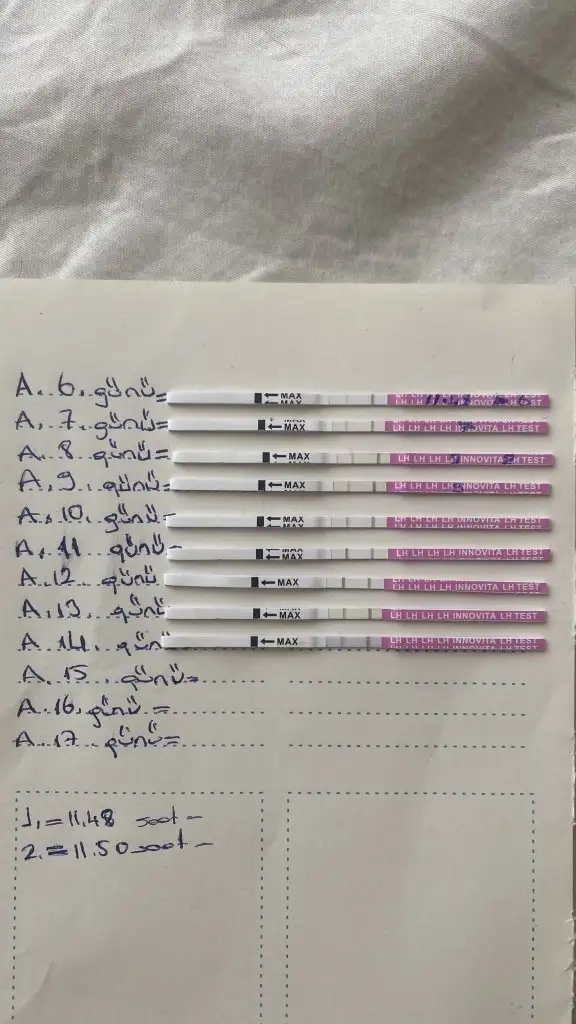 A. 6. günü=
← MAX
LH LH LH LH INNOVITA LH TEST
A. 7. günü=
← MAX
LH LH LH LH INNOVITA LH TEST
A. 8 günü=
← MAX
LH LH LH LH INNOVITA LH TEST
A. 9. günü=
← MAX
LH LH LH LH INNOVITA LH TEST
A. 10. günü=
← MAX
LH LH LH LH INNOVITA LH TEST
A. 11 günü=
← MAX
LH LH LH LH INNOVITA LH TEST
A. 12 günü
← MAX
LH LH LH LH INNOVITA LH TEST
A. 13. günü
← MAX
LH LH LH LH INNOVITA LH TEST
A. 14. günü
← MAX
LH LH LH LH INNOVITA LH TEST
A. 15. günü=
A. 16. günü =
A. 17. günü=
1. = 11.48 saat -
2. = 11.50 saat -